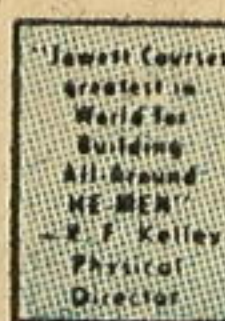 "Jowett Courses
greatest in
World for
Building
All-Around
HE-MEN"
— R. F. Kelley
Physical
Director